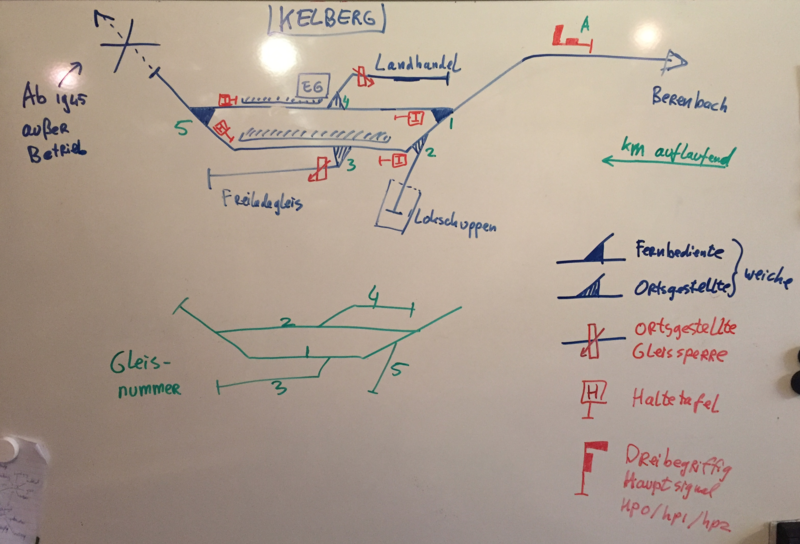 KELBERG
A
Landhandel
EG
4
Ab 1945
außer
Betrieb
Berenbach
H
H
1
5
H
H
2
3
km auflaufend
Freiladegleis
Lokschuppen
Fernbediente
Ortsgestellte
weiche
4
2
1
Gleis-
nummer
3
5
Ortsgestellte
Gleissperre
H
Haltetafel
Dreibegriffig
Hauptsignal
Hp0/hp1/hp2